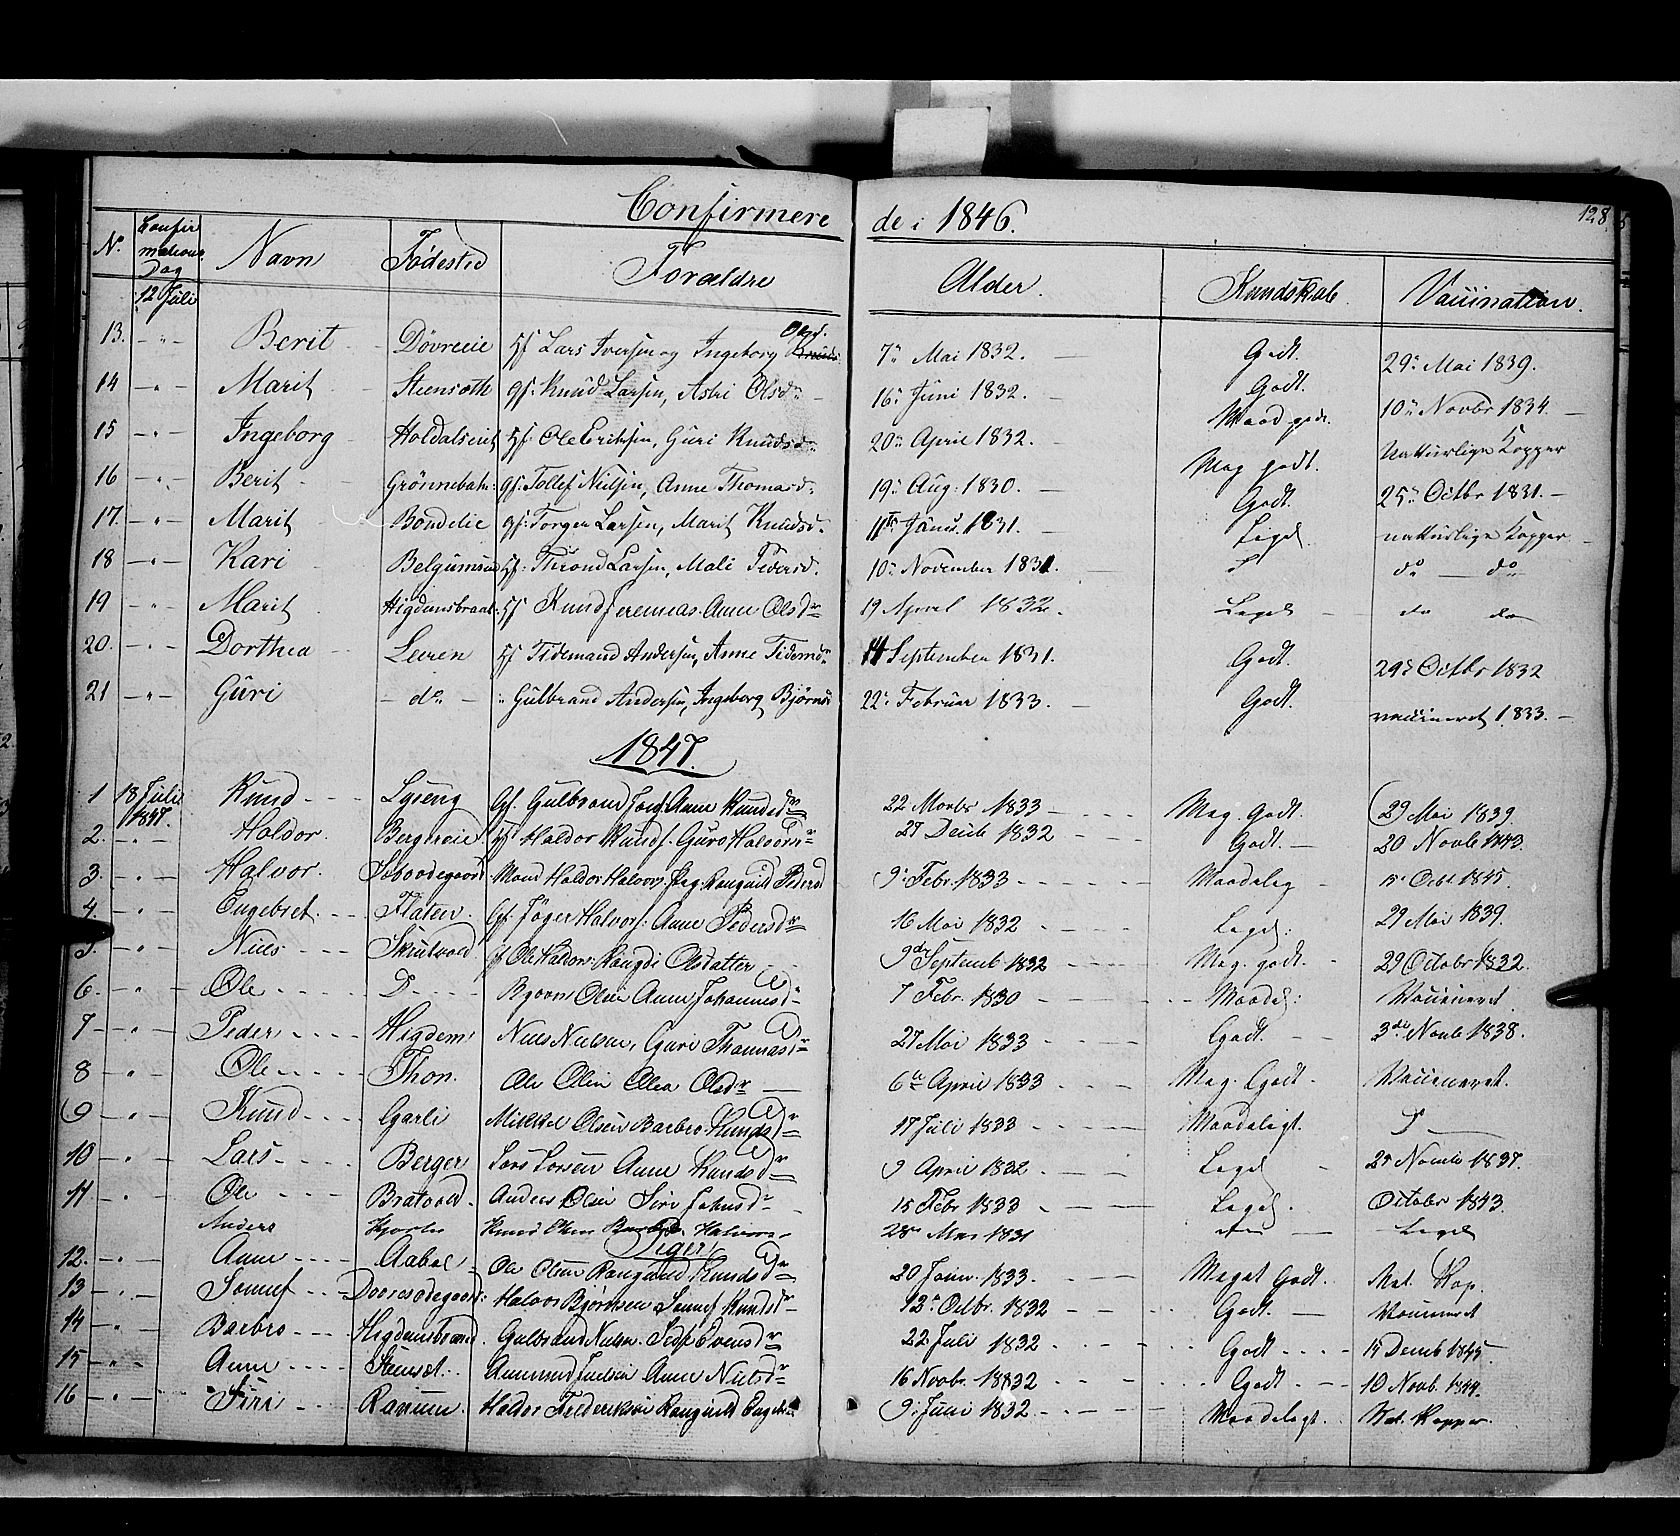 Confirmerede i 1846. 128
N. Confirmations Dag Navn Fødested Forældre Alder. Kundskab. Vaccination.
12 Juli
13. -"- Berit Dovreeie Hf Lars Iversen og Ingeborg Knuds Olsd. 7de Mai 1832. Godt. 29de Mai 1839.
14 -"- Marit Steensæth gf: Knud Larsen, Astri Olsdr 16de Juni 1832. Godt. 10de Novbr 1834.
15 -"- Ingeborg Holdalseiet Hf Ole Eriksen, Guri Knudsdr 20de April 1832. Maad. godt. Naturlige Kopper
16 -"- Berit gf: Tollef Nielsen, Anne Thomasd. 19de Aug. 1830. Meg. godt. 25de Octbr 1831.
17. -"- Marit gf: Torger Larsen, Marit Knudsd. 11te Janu. 1831. Godt. naturlige Kopper
18 -"- Kari Hf: Larsen, Mali Pedersd. 10de November 1831. Leged do do
19 -"- Marit Higdemsbraat: Hf Knud Jeremias. Anne Olsdr 19 April 1832. Leged do do
20. -"- Dorthea Leiren Hf Tidemand Andersen, Anne Tidemdr 11 September 1831. Godt. 29de Octbr 1832
21 -"- Guri - do - " Gulbrand Andersen, Ingeborg Bjørnsd 22de Februar 1833. Godt. vaccineret 1833.
1847.
1 18 Juli 1847. Knud Lyseng Gf. Gulbrand Anne Knudsdr 22 Novbr 1833 Meg. Godt. 29 Mai 1839.
2. -"- Haldor. Bergereie Hf Haldor Knuds. Guro Halvorsdr 27 Decmb 1832 Godt. 20 Novb 1843.
3. -"- Halvor. Haldor Halvors. Rangnild Pedersd 9de Febr. 1833 Maadeleg 15 Octbr 1845.
4. -"- Engebret. Flaten. Gf. Halvors: Anne Pedersdr 16 Mai 1832 Leged: 29 Mai 1839.
5. -"- Niels Skrutvold gf Ole Haldors: Rangdi Olsdatter 9de Septemb 1832 Meg. godt. 29 Octobr 1832.
6. -"- Ole D. Bjørn Olsen Anne Johannesdr 7 Febr. 1830 Maadel: Vaccineret
7 -"- Peder Higdem Niels Nielsen, Guri Thomasdr 27 Mai 1833 Godt. 3de Novb 1838.
8 -"- Ole Thon. Ole Olsen Olea Olsdr 6te April 1833 Meg. Godt. Vaccineret.
9 -"- Knud Garli Mikkel Olsen Barbro Knudsdr 17 Juli 1833 Maadelegt.
10 -"- Lars Berger Lars Larsen Anne Knudsdr 9 April 1832 Leged 1837.
11 -"- Ole Bratvold Anders Olsen Siri Johnsdr 15 Febr 1833 Leged. Octobr 1843.
Anders Hjorten Knud Olsen Barbro Halvors 28de Mai 1831 Leged
Piger
12. -"- Anne Aabol Ole Olsen Rangnild Knudsdr 20 Janu. 1833. Meget Godt. Nat. Kop.
13 -"- Halvor Bjørnsen Knudsdr 12te Octbr. 1832 Godt. Vaccineret
14 -"- Barbro Higdemsbraad. Gulbrand Niels. Evensdr 22 Juli 1832 Godt 15 Decemb 1845.
15 -"- Anne Steensæt. Amund Anne Nielsdr 16 Novbr. 1832 Godt 10 Novb. 1844.
16 -"- Siri Ranum. Haldor Frederiksen Rangnild 9de Juni 1832. Maadelegt. Nat. Kopper.